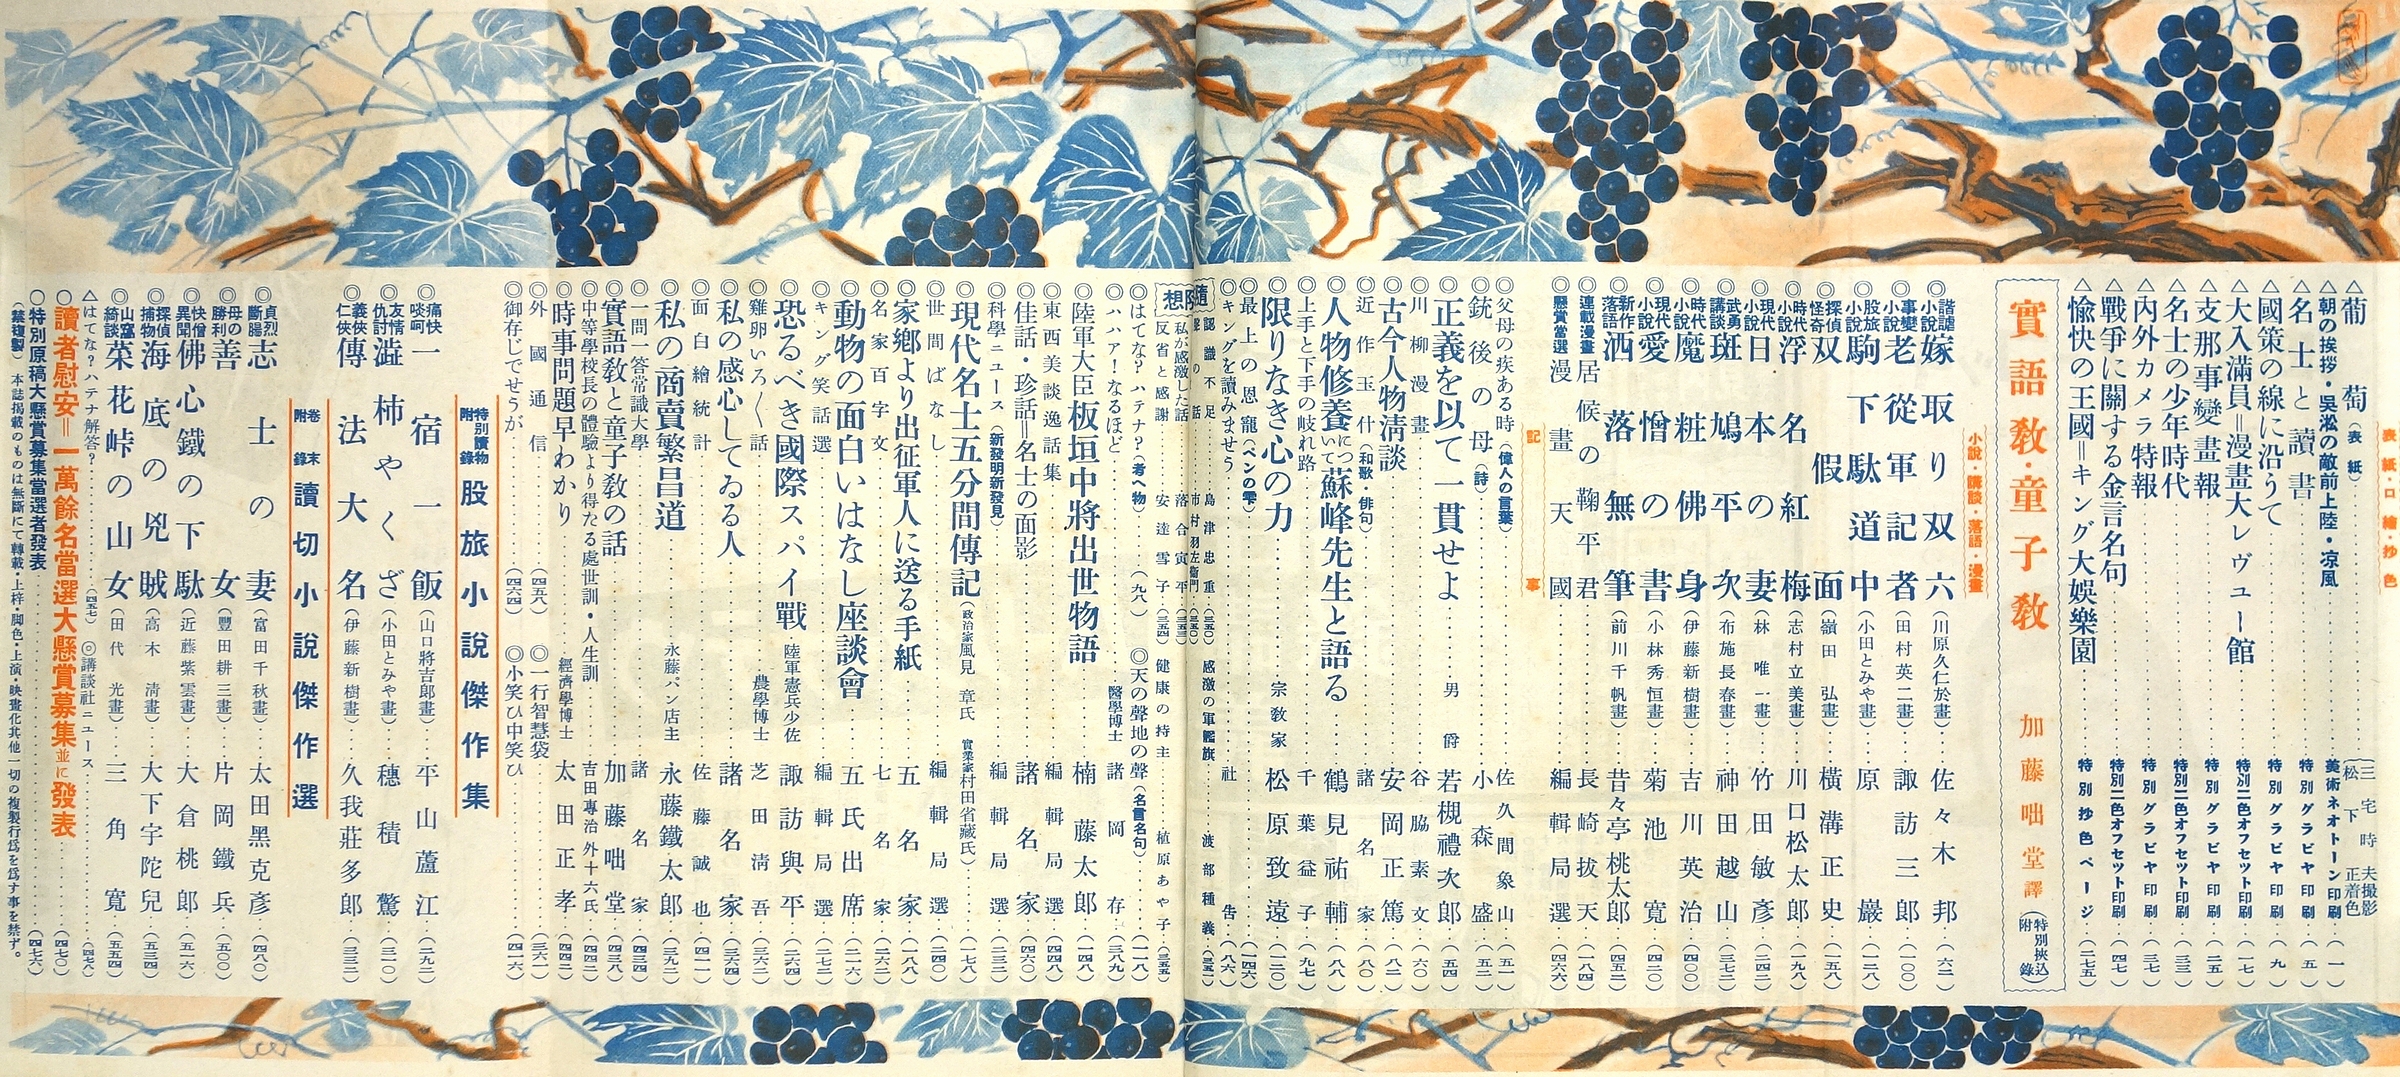 表紙・口繪・抄色
△葡萄(表紙)……三宅時夫撮影 松下正着色
△朝の挨拶・吳淞の敵前上陸・凉風……美術ネオトーン印刷…(一)
△名士と讀書……特別グラビヤ印刷…(五)
△國策の線に沿うて……特別グラビヤ印刷…(九)
△大入滿員=漫畫大レヴュー館……特別二色オフセット印刷…(一七)
△支那事變畫報……特別グラビヤ印刷…(二五)
△名士の少年時代……特別二色オフセット印刷…(三三)
△內外カメラ特報……特別グラビヤ印刷…(三七)
△戰爭に關する金言名句……特別二色オフセット印刷…(四七)
△愉快の王國=キング大娛樂園……特別抄色ページ…(二七五)
實語敎・童子敎 加藤咄堂譯(特別挾込附錄)
小說・講談・落語・漫畫
◎諧謔小說 嫁取り双六敎(川原久仁於畫)…佐々木邦…(六二)
◎事變小說 老從軍記者(田村英二畫)…諏訪三郎…(一〇〇)
◎股旅小說 駒下駄道中(小田とみや畫)…原巖…(一二八)
◎探偵怪奇 双假面(嶺田弘畫)…橫溝正史…(一五八)
◎時代小說 浮名紅梅(志村立美畫)…川口松太郎…(一九八)
◎現代小說 日本の妻(林唯一畫)…竹田敏彥…(二四二)
◎武勇講談 斑鳩平次(布施長春畫)…神田越山…(三七二)
◎時代小說 魔粧佛身(伊藤新樹畫)…吉川英治…(四〇〇)
◎現代小說 愛憎の書(小林秀恒畫)…菊池寬…(四二〇)
◎新作落語 洒落無筆(前川千帆畫)…昔々亭桃太郎…(四五二)
◎連載漫畫 居候の鞠平君……長崎拔天…(一八四)
◎懸賞當選 漫畫天國……編輯局選…(四六六)
記事
◎父母の疾ある時(偉人の言葉)……佐久間象山…(五一)
◎銃後の母(詩)……小森盛…(五二)
◎正義を以て一貫せよ……男爵 若槻禮次郎…(五四)
◎川柳漫畫……谷脇素文…(六〇)
◎古今人物淸談……安岡正篤…(八二)
◎近作玉什(和歌・俳句)……諸名家…(八〇)
◎人物修養について蘇峰先生と語る……鶴見祐輔…(八八)
◎上手と下手の岐れ路……千葉益子…(九七)
◎限りなき心の力……宗敎家 松原致遠…(一二〇)
◎最上の恩寵(ペンの雫)……(一四六)
◎キングを讀みませう……社告…(八六)
隨想
認識不足……島津忠重…(三五〇) 感激の軍艦旗……渡部種義…(三五一)
聲の話……市村羽左衞門…(三五〇)
私が感激した話……落合寅平…(三五三)
反省と感謝……安達雪子…(三五四) 健康の持主……植原あや子…(三五五)
◎はてな?ハテナ?(考へ物)……(九八) ◎天の聲地の聲(名言名句)……(一一八)
◎ハハア!なるほど……醫學博士 諸岡存…(三八九)
◎陸軍大臣板垣中將出世物語……楠藤太郎…(一四八)
◎東西美談逸話集……編輯局選…(四四八)
◎佳話・珍話=名士の面影……諸名家…(四六〇)
◎科學ニュース(新發明新發見)……編輯局選…(二三二)
◎現代名士五分間傳記(政治家風見章氏 實業家村田省藏氏)…(一七八)
◎世間ばなし……編輯局選…(二四〇)
◎家鄕より出征軍人に送る手紙……五名家…(一八八)
◎名家百字文……七名家…(二六二)
◎動物の面白いはなし座談會……五氏出席…(二一六)
◎キング笑話選……編輯局選…(二七二)
◎恐るべき國際スパイ戰……陸軍憲兵少佐 諏訪與平…(二六四)
◎雞卵いろ〱話……農學博士 芝田淸吾…(三六二)
◎私の感心してゐる人……諸名家…(三六四)
◎面白繪統計……佐藤誠也…(四一一)
◎私の商賣繁昌道……永藤パン店主 永藤鐵太郎…(三九二)
◎一問一答常識大學……諸名家…(四三四)
◎實語敎と童子敎の話……加藤咄堂…(四三八)
◎中等學校長の體驗より得たる處世訓・人生訓……吉田專治外十六氏…(四四二)
◎時事問題早わかり……經濟學博士 太田正孝…(四四二)
◎外國通信……(四五八) ◎一行智慧袋……(三六一)
◎御存じでせうが……(四六四) ◎小笑ひ中笑ひ……(四一六)
特別讀物附錄 股旅小說傑作集
◎痛快啖呵 一宿一飯(山口將吉郎畫)…平山蘆江…(二九二)
◎友情仇討 澁柿やくざ(小田とみや畫)…穗積驚…(三一〇)
◎義俠仁俠 傳法大名(伊藤新樹畫)…久我莊多郎…(三三二)
卷末附錄 讀切小說傑作選
◎貞烈斷腸 志士の妻(富田千秋畫)…太田黑克彥…(四八〇)
◎母の勝利 善女(豐田耕三畫)…片岡鐵兵…(五〇〇)
◎快僧異聞 佛心鐵の下駄(近藤紫雲畫)…大倉桃郎…(五一六)
◎探偵捕物 海底の兇賊(高木淸畫)…大下宇陀兒…(五三四)
◎山窩綺談 菜花峠の山女(田代光畫)…三角寬…(五五四)
△はてな?ハテナ解答?……(四五七) ◎講談社ニュース……(四七八)
○讀者慰安=一萬餘名當選大懸賞募集並に發表……(四七〇)
○特別原稿大懸賞募集當選者發表……(四七六)
(禁複製) 本誌揭載のものは無斷にて轉載・上梓・脚色・上演・映畫化其他一切の複製行爲を爲す事を禁ず。